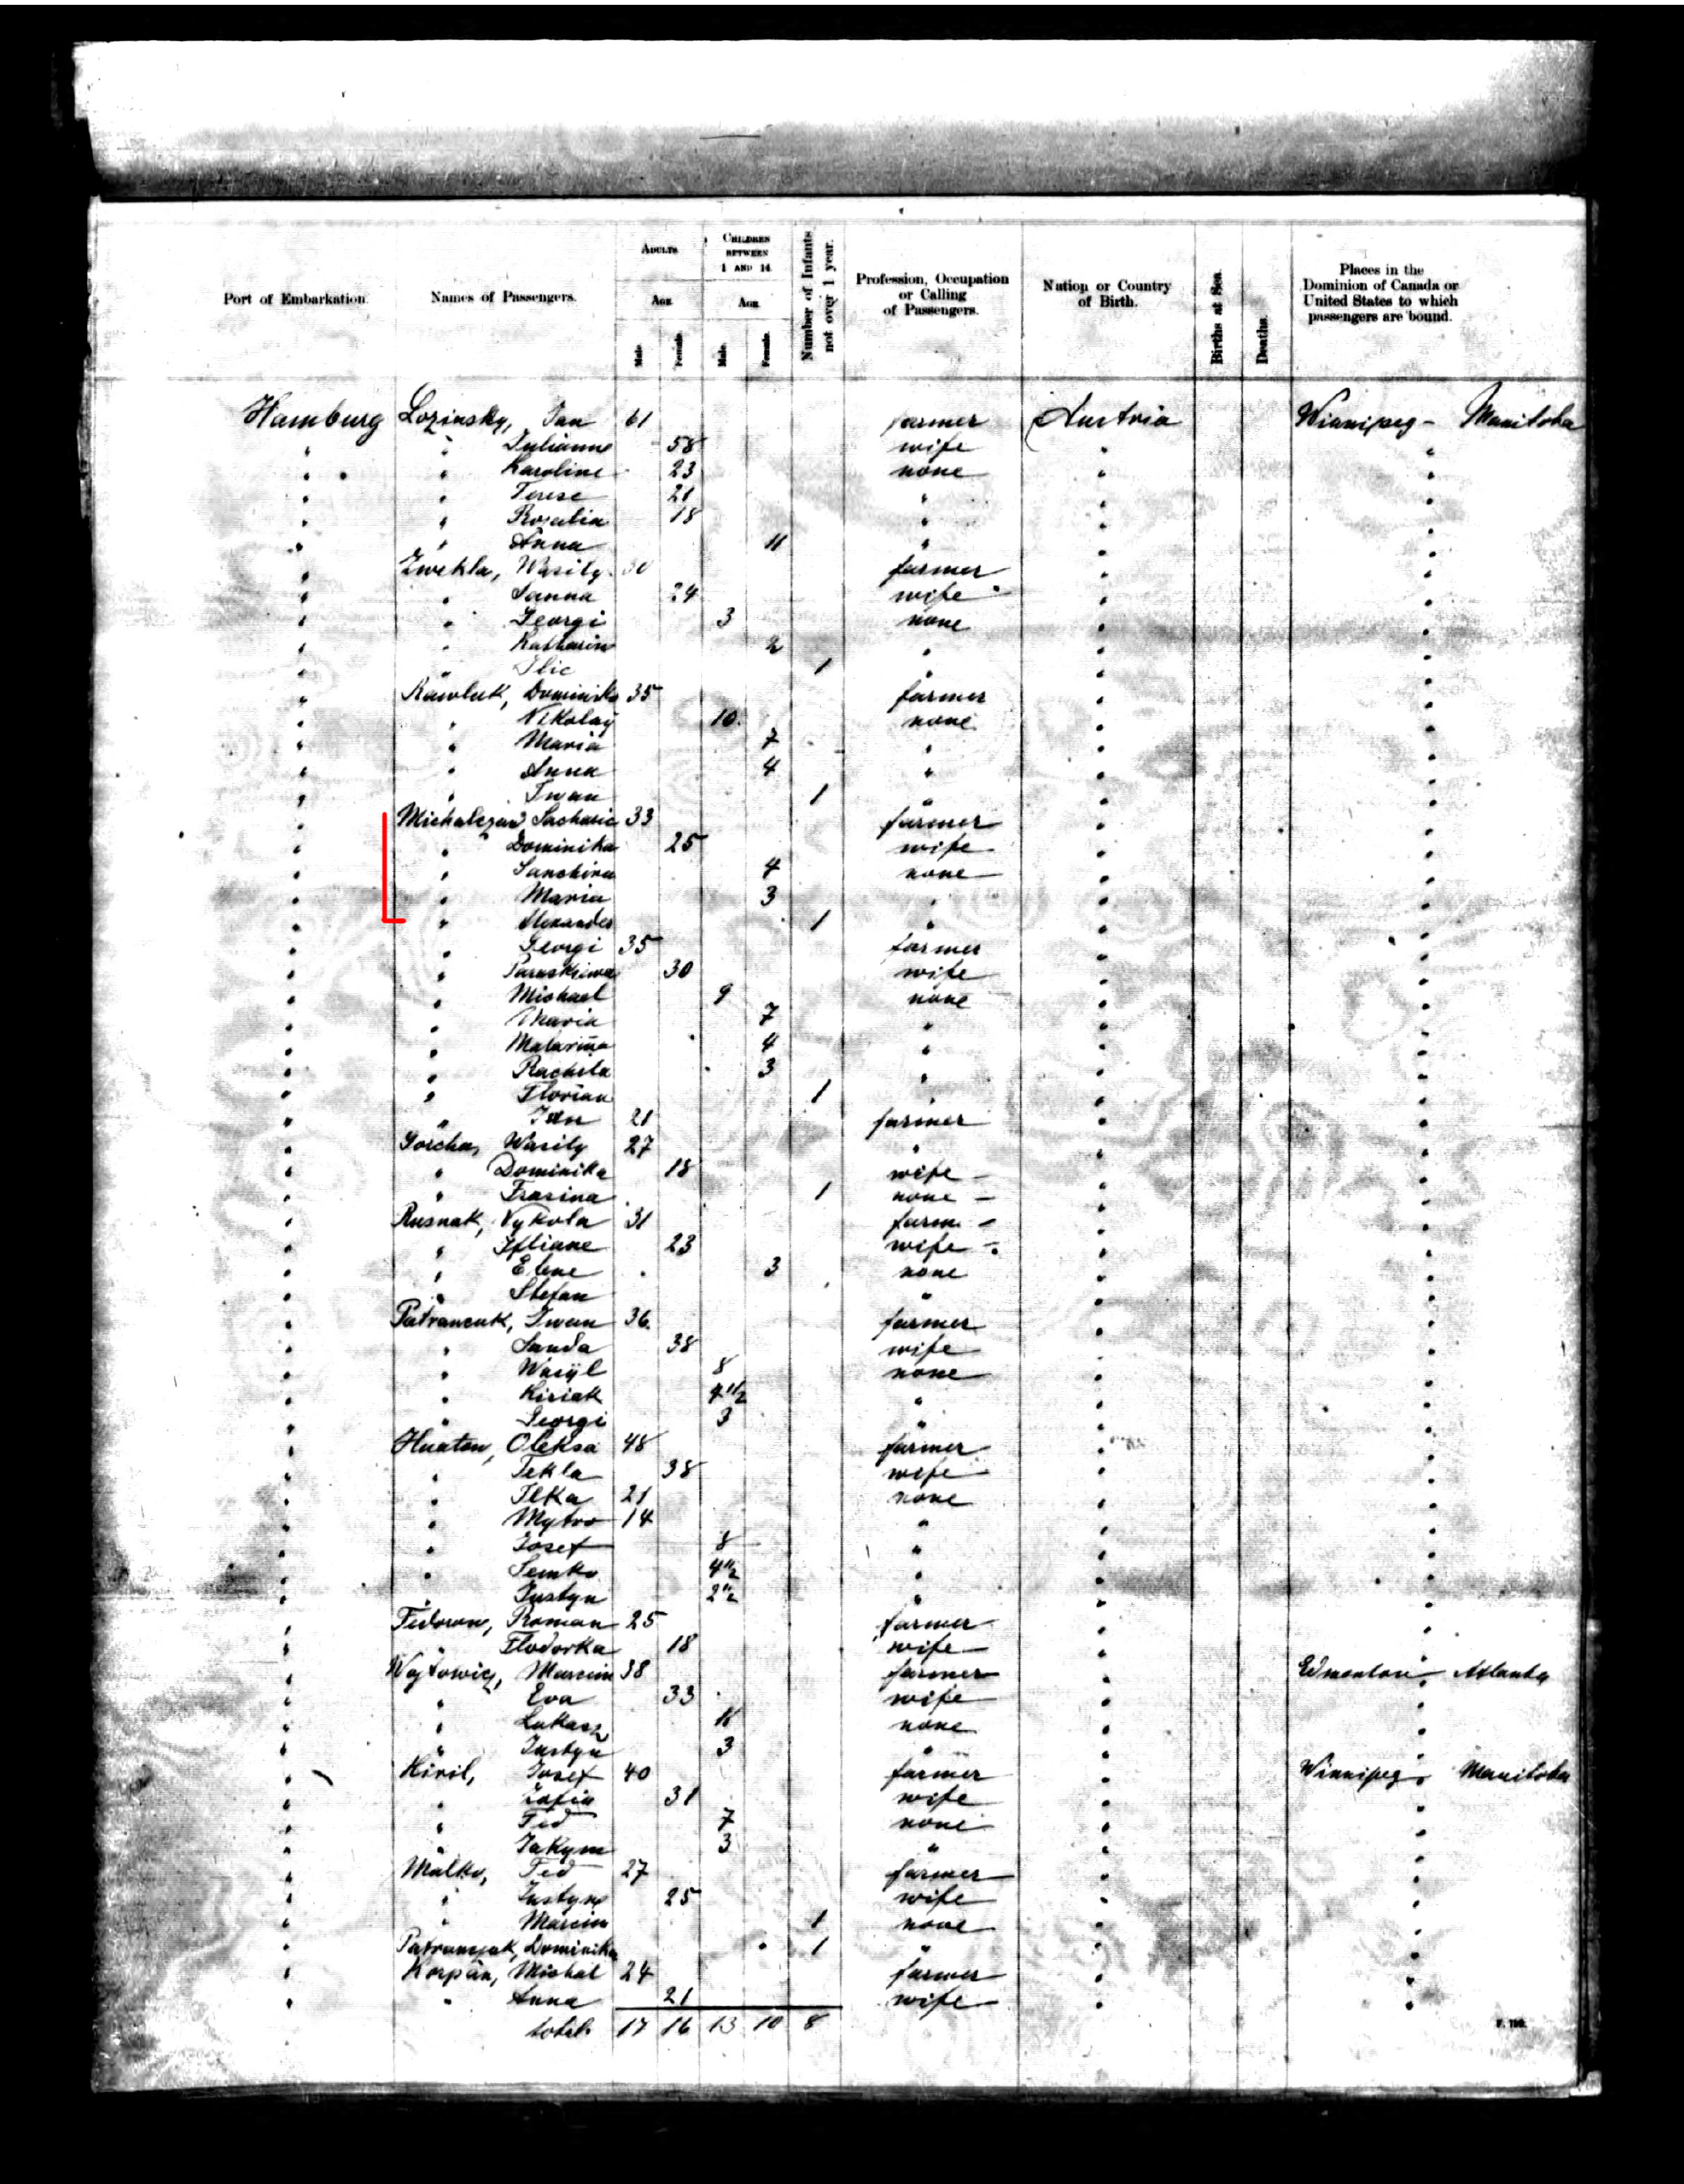 Port of Embarkation. Names of Passengers. Adults Age Male. Female. Children between 1 and 14 Age. Male. Female. Number of Infants not over 1 year. Profession, Occupation or Calling of Passengers. Nation or Country of Birth. Births at Sea. Deaths. Places in the Dominion of Canada or United States to which passengers are bound.
Hamburg Lozinsky, Jan 61 farmer Austria Winnipeg - Manitoba
" " Julianne 58 wife " "
" " Karoline 23 none " "
" " Terese 21 " " "
" " Rosalia 18 " " "
" " Anna 11 " " "
" Zwekla, Wasily 30 farmer " "
" " Sanna 24 wife " "
" " Georgi 3 none " "
" " Katharine 2 " " "
" " Ilie 1 " " "
" Rawluk, Dominika 35 farmer " "
" " Nikolay 10 none " "
" " Maria 7 " " "
" " Anna 4 " " "
" " Iwan 1 " " "
" Michalczan Sacharie 33 farmer " "
" " Dominika 25 wife " "
" " Sanchira 4 none " "
" " Maria 3 " " "
" " Alexander 1 " " "
" " Georgi 35 farmer " "
" " Paraskiwa 30 wife " "
" " Michael 9 none " "
" " Maria 7 " " "
" " Malarina 4 " " "
" " Rachila 3 " " "
" " Florian 1 " " "
" " Jan 21 farmer " "
" Gorcha, Wasily 27 " " "
" " Dominika 18 wife " "
" " Frasina 1 none " "
" Rusnak, Nykola 31 farm. " "
" " Ifliane 23 wife " "
" " Elene 3 none " "
" " Stefan " " "
" Patrancuk, Iwan 36 farmer " "
" " Sanda 38 wife " "
" " Wasyl 8 none " "
" " Kiriak 4 11/2 " " "
" " Georgi 3 " " "
" Huaton, Oleksa 48 farmer " "
" " Tekla 38 wife " "
" " Ilka 21 none " "
" " Mytro 14 " " "
" " Josef 8 " " "
" " Semko 4 11/2 " " "
" " Justyn 2 " " "
" Fedorow, Roman 25 farmer " "
" " Flodorka 18 wife " "
" Wojtowicz, Marcin 38 farmer " Edmonton Atlanta
" " Eva 33 wife " "
" " Lukasz 11 none " "
" " Justyn 3 " " "
" Kiril, Josef 40 farmer " Winnipeg, Manitoba
" " Zofia 31 wife " "
" " Fed 7 none " "
" " Jakym 3 " " "
" Malko, Fed 27 farmer " "
" " Justyne 25 wife " "
" " Marcin 1 none " "
" Patranczak, Dominika 1 " " "
" Korpan, Michal 24 farmer " "
" " Anna 21 wife " "
total: 17 16 13 10 8